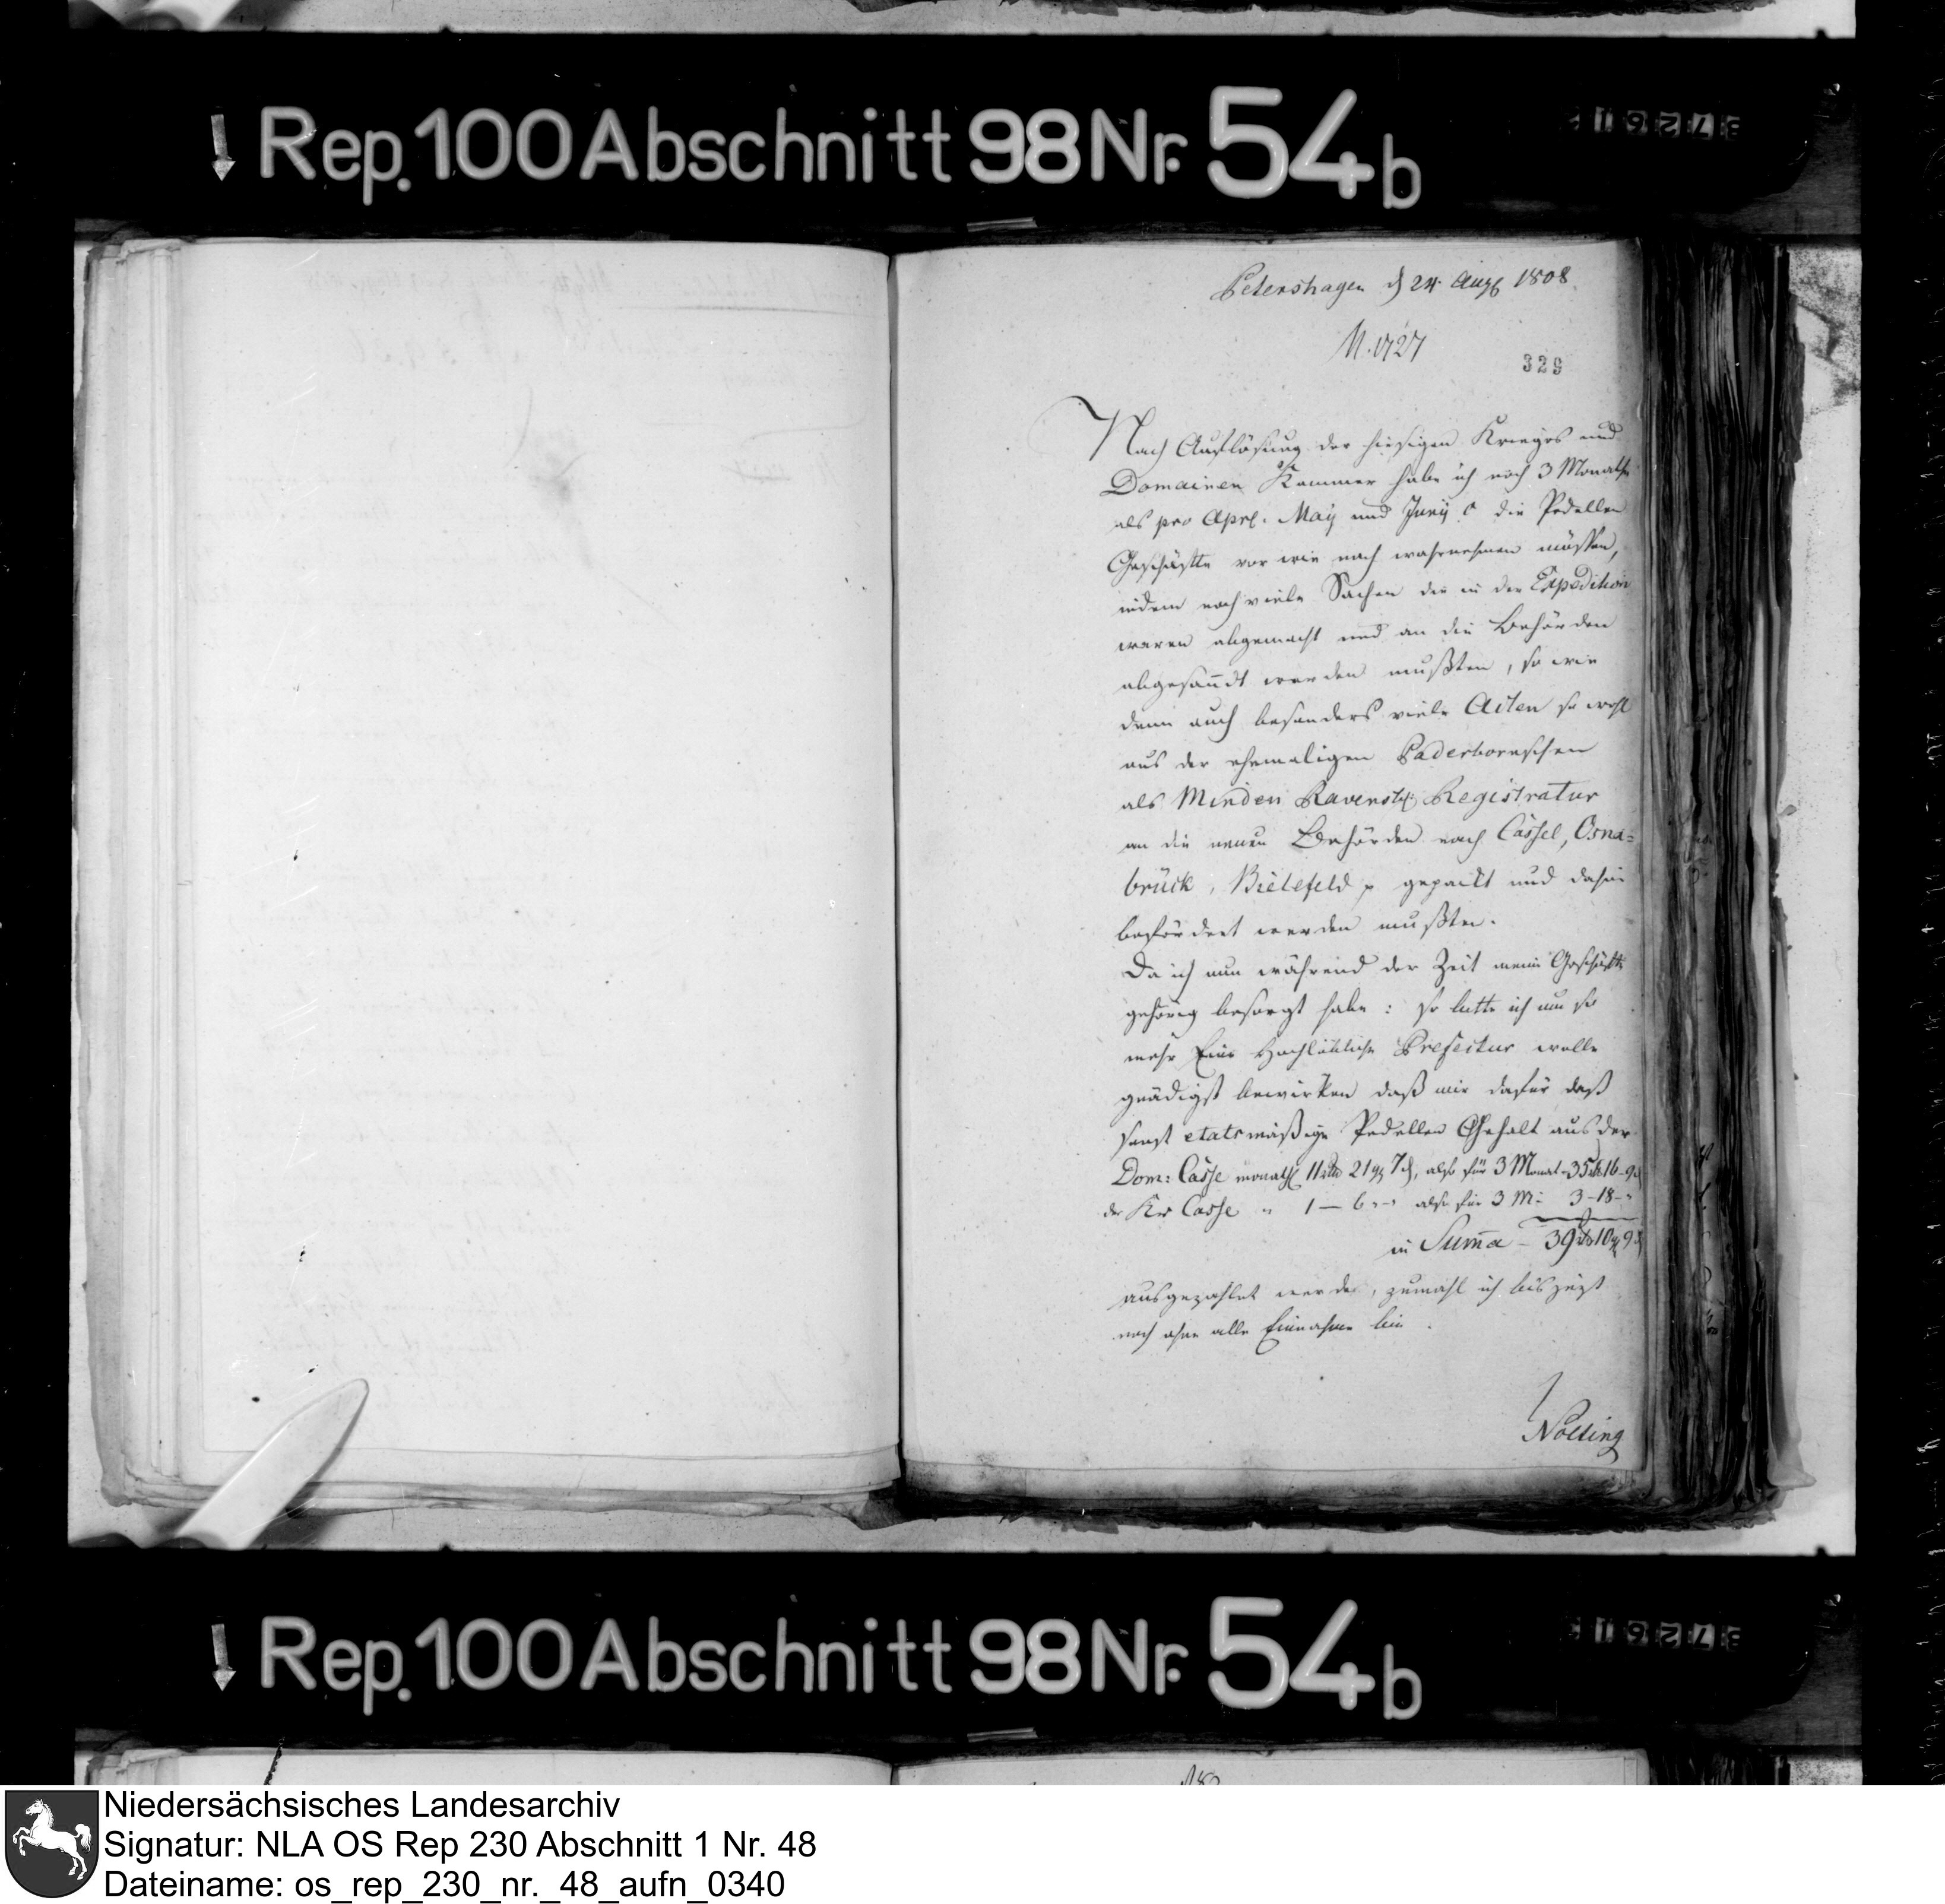 Rep. 100 Abschnitt 98 Nr. 54b
Petershagen d 24. Aug 1808.
N. 1727
329
Nach Auflösung der hiesigen Krieges und
Domainen Kammer habe ich noch 3 Monathe
als pro Aprl. May und Juny die Pedellen
Geschäfte vor wie nach wahrnehmen müssen,
indem noch viele Sachen die in der Expedition
waren abgemacht und an die Behörden
abgesandt werden mußten, so wie
denn auch besonders viele Acten so wohl
aus der ehemaligen Paderbornschen
als Minden Ravensb: Registratur
an die neuen Behörden nach Cassel, Osna=
brück, Bielefeld p gepackt und dahin
befördert werden mußten.
Da ich nun während der Zeit meine Geschäfte
gehörig besorgt habe: so bitte ich um so
mehr Eine Hochlöbliche Prefectur wolle
gnädigst bewirken daß mir dafür daß
sonst etatsmäßige Pedellen Gehalt aus der
Dom: Casse monatl 11 rtlr 21 gg 7 d, also für 3 Monat - 35 rtlr 16 - 9 d
der Kr Casse " 1 — 6 - - also für 3 M: 3 - 18 - "
in Summa - 39 rtlr 10 gg 9 d
ausgezahlet werde, zumahl ich bis jezt
noch ohne alle Einnahme bin.
Nolting
Rep. 100 Abschnitt 98 Nr. 54b
Niedersächsisches Landesarchiv
Signatur: NLA OS Rep 230 Abschnitt 1 Nr. 48
Dateiname: os_rep_230_nr._48_aufn_0340